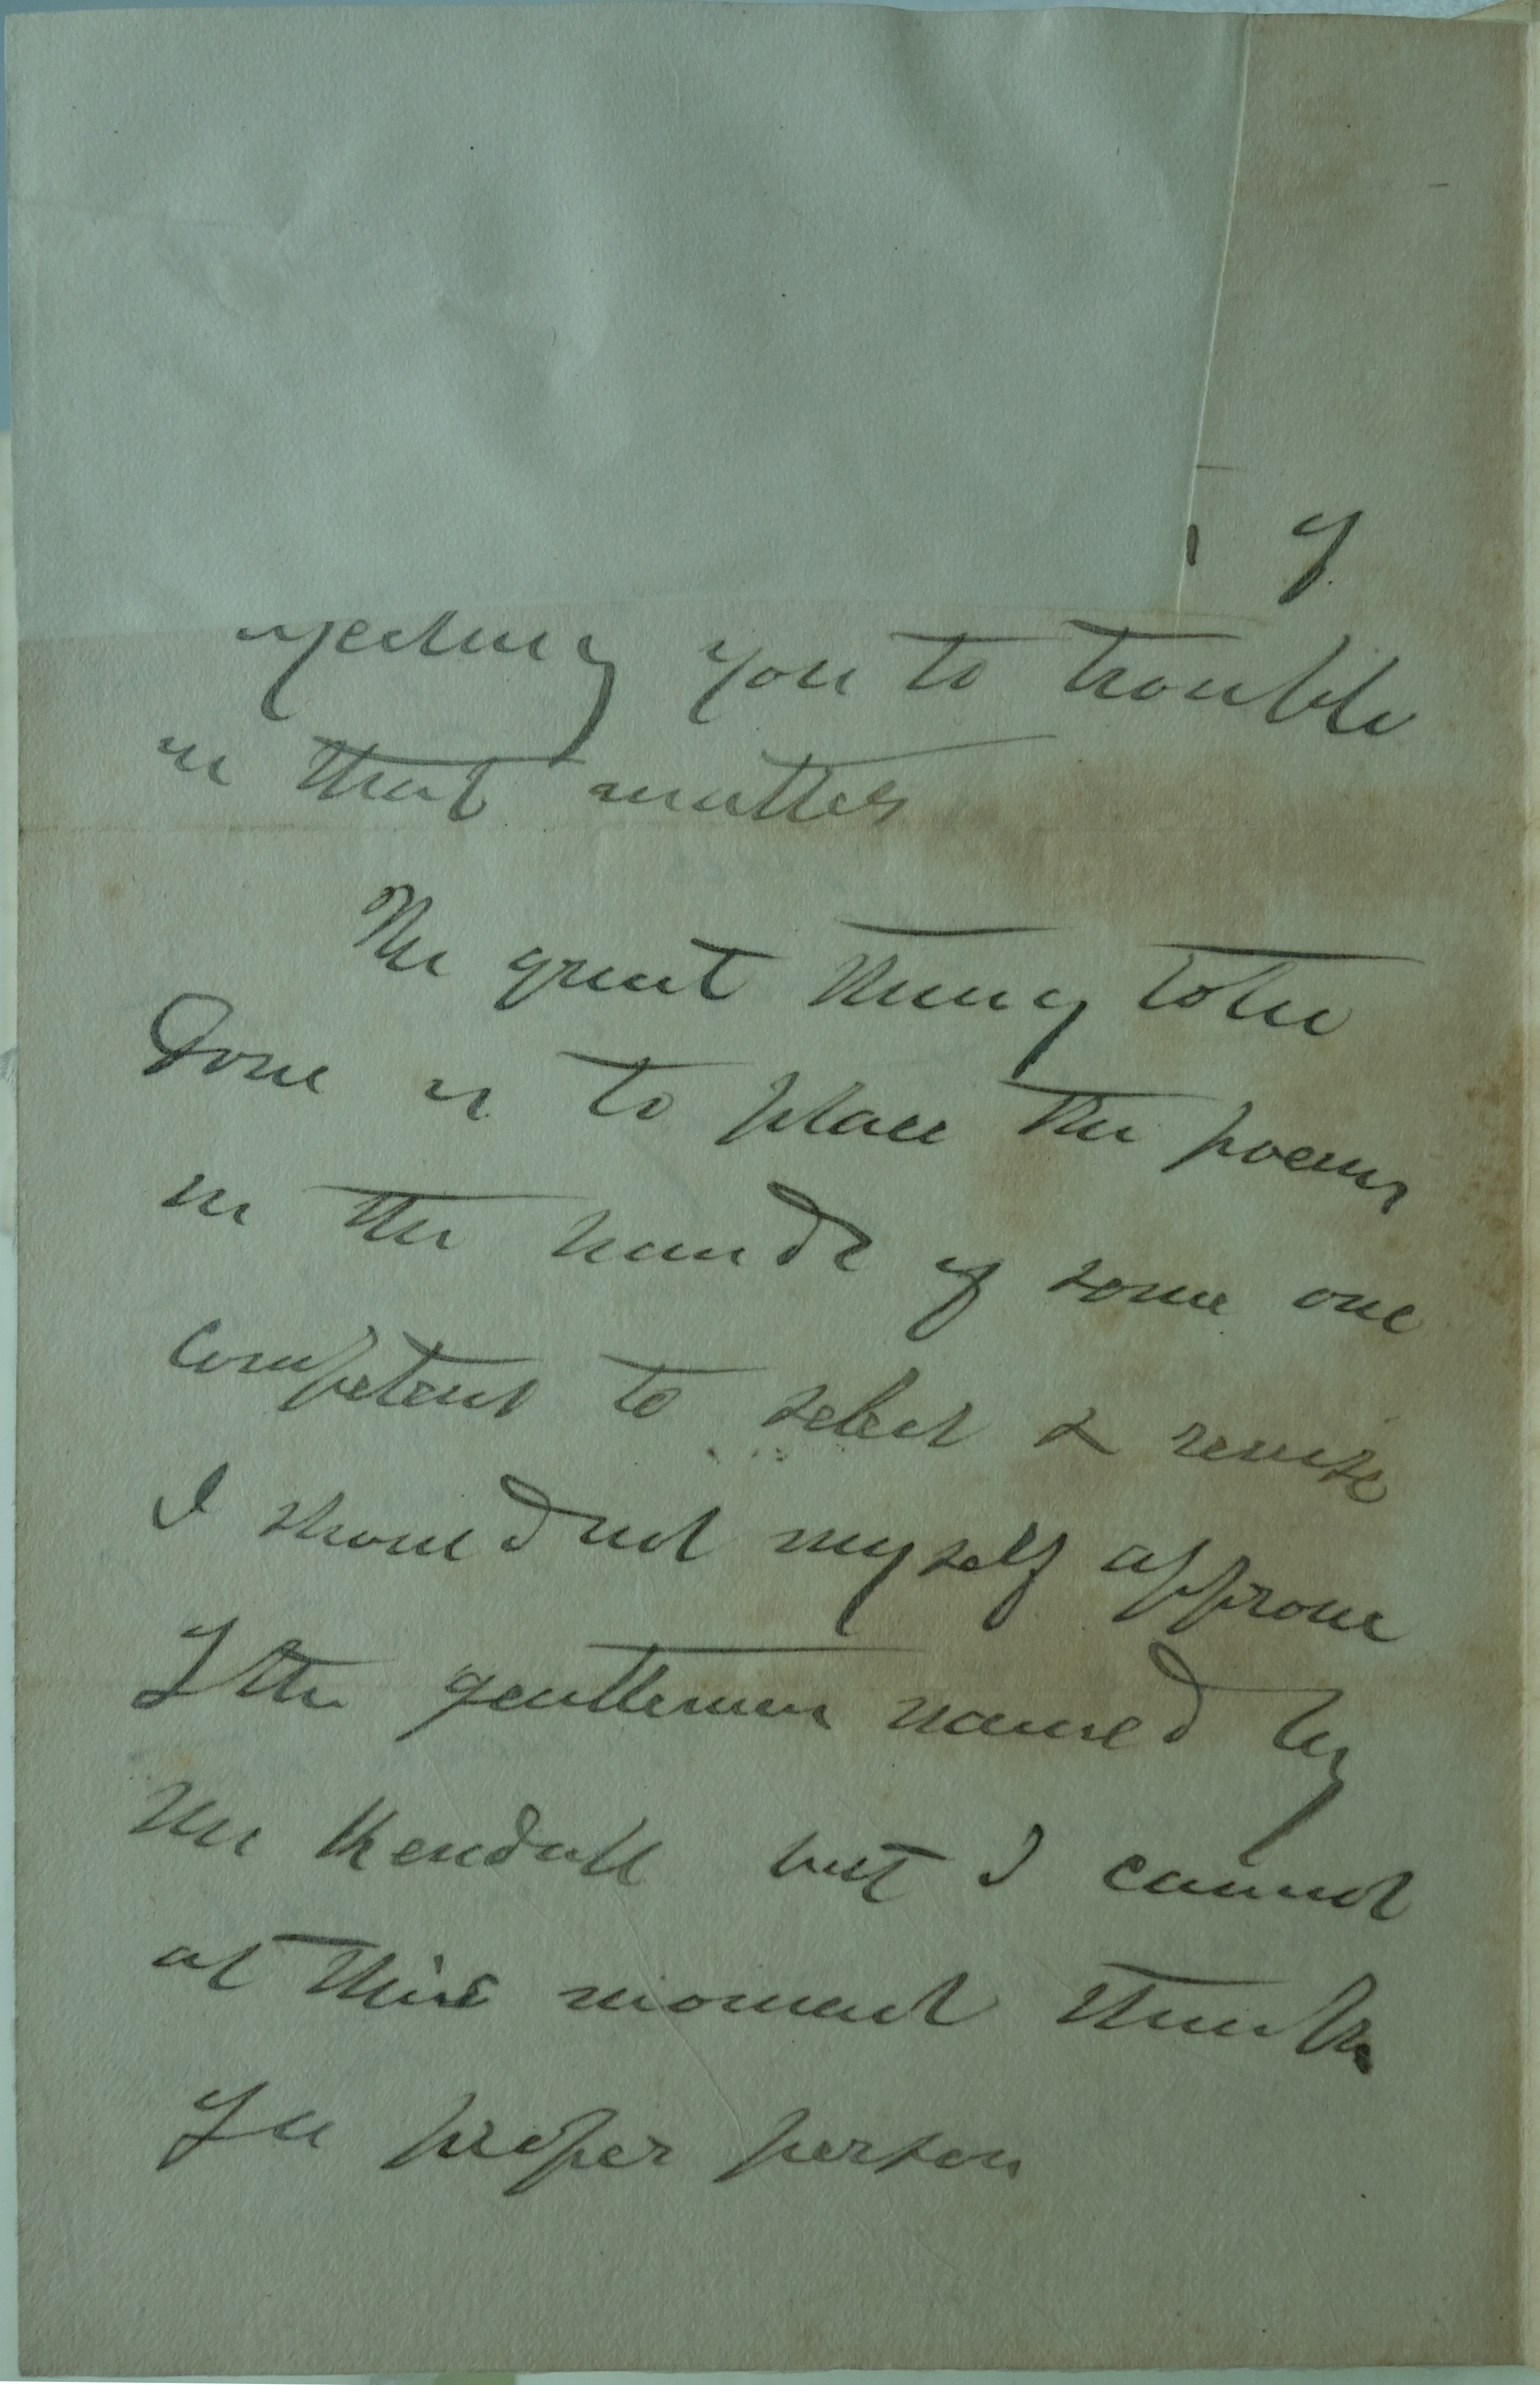 of
you to trouble
in that matter
The great thing to be
done is to place the poems
in the hands of some one
competent to select & revise
I should not myself approve
of the gentleman named by
Mr Kendall but I cannot
at this moment think
of a proper person